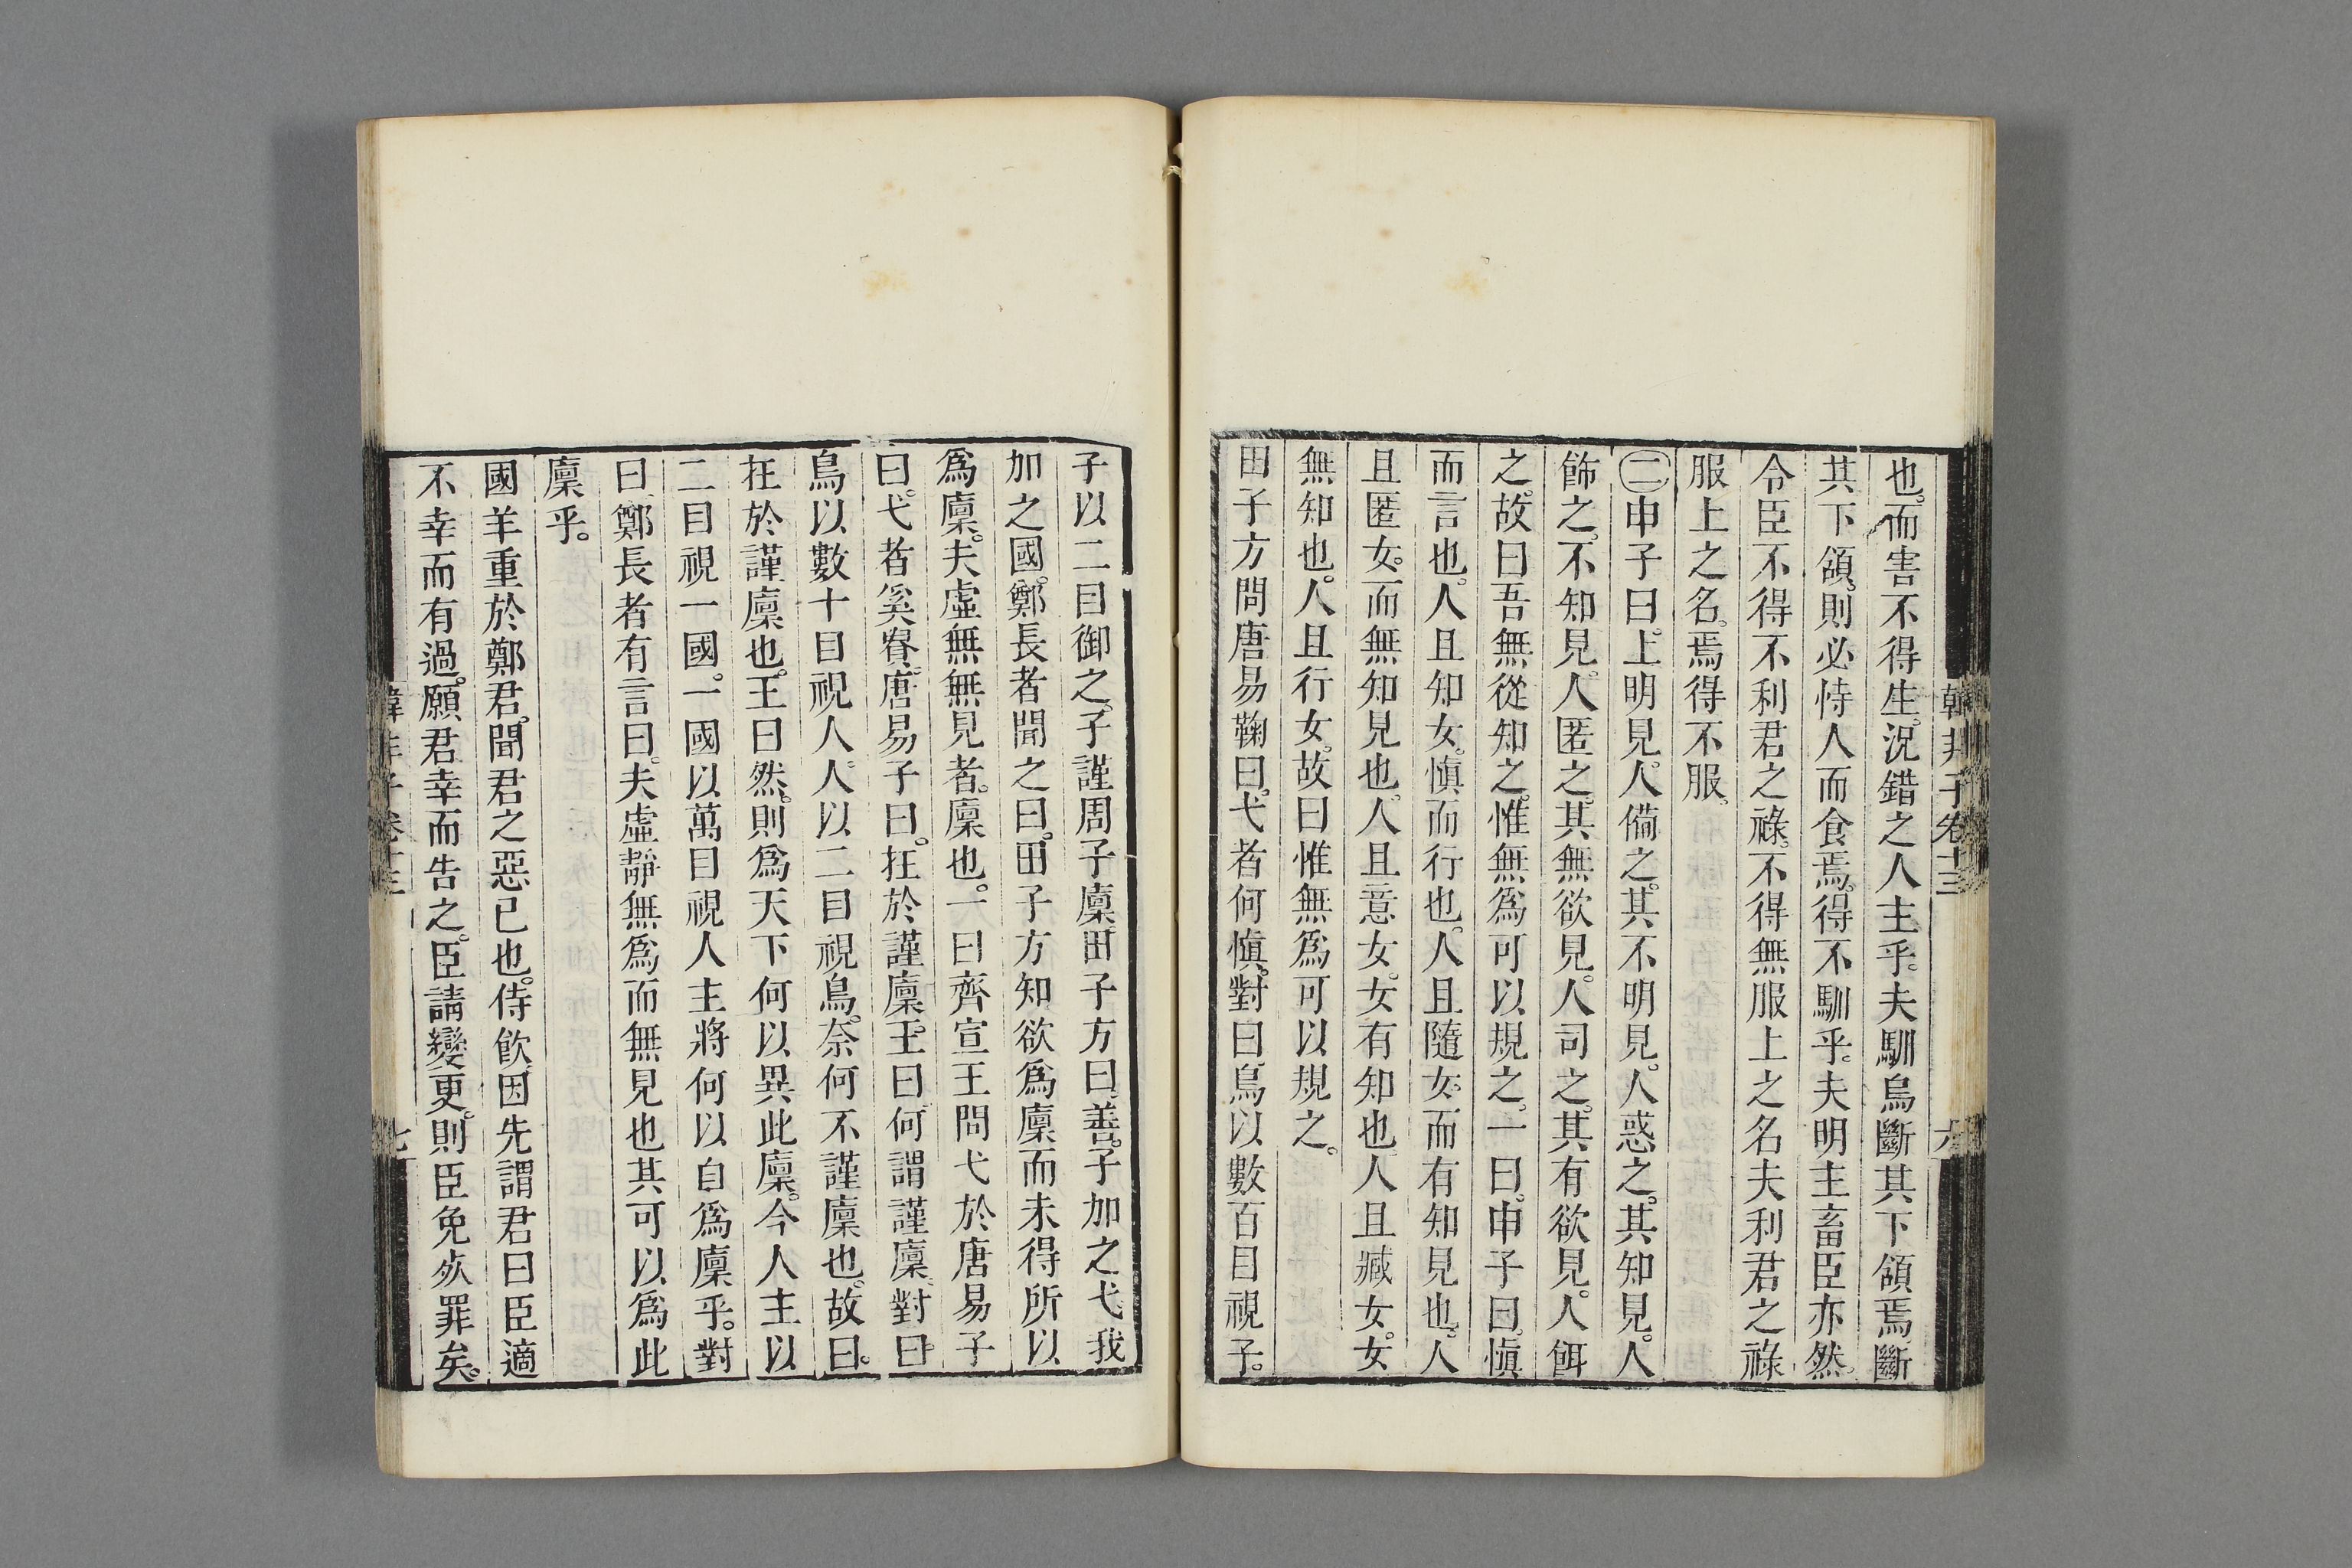 韓非子卷十三
六
也。而害不得生。況錯之人主乎。夫馴烏斷其下頷焉。斷
其下頷。則必恃人而食焉。得不馴乎。夫明主畜臣亦然。
令臣不得不利君之祿。不得無服上之名。夫利君之祿
服上之名。焉得不服。
㊁申子曰。上明見。人備之。其不明見。人惑之。其知見。人
飾之。不知見。人匿之。其無欲見。人司之。其有欲見。人餌
之。故曰吾無從知之。惟無爲可以規之。一曰。申子曰。愼
而言也。人且知女。愼而行也。人且隨女。而有知見也。人
且匿女。而無知見也。人且意女。女有知也。人且臧女。女
無知也。人且行女。故曰惟無爲可以規之。
田子方問唐易鞠曰。弋者何愼。對曰。鳥以數百目視子。
子以二目御之。子謹周子廩。田子方曰。善。子加之弋。我
加之國。鄭長者聞之曰。田子方知欲爲廩。而未得所以
爲廩。夫虛無無見者。廩也。一曰齊宣王問弋於唐易子
曰。弋者奚貴。唐易子曰。在於謹廩。王曰。何謂謹廩。對曰。
鳥以數十目視人。人以二目視鳥。奈何不謹廩也。故曰。
在於謹廩也。王曰。然。則爲天下何以異此廩。今人主以
二目視一國。一國以萬目視人主。將何以自爲廩乎。對
曰。鄭長者有言曰。夫虛靜無爲而無見也。其可以爲此
廩乎。
國羊重於鄭君。聞君之惡已也。侍飮。因先謂君曰。臣適
不幸而有過。願君幸而告之。臣請變更。則臣免死罪矣。
韓非子卷十三
七